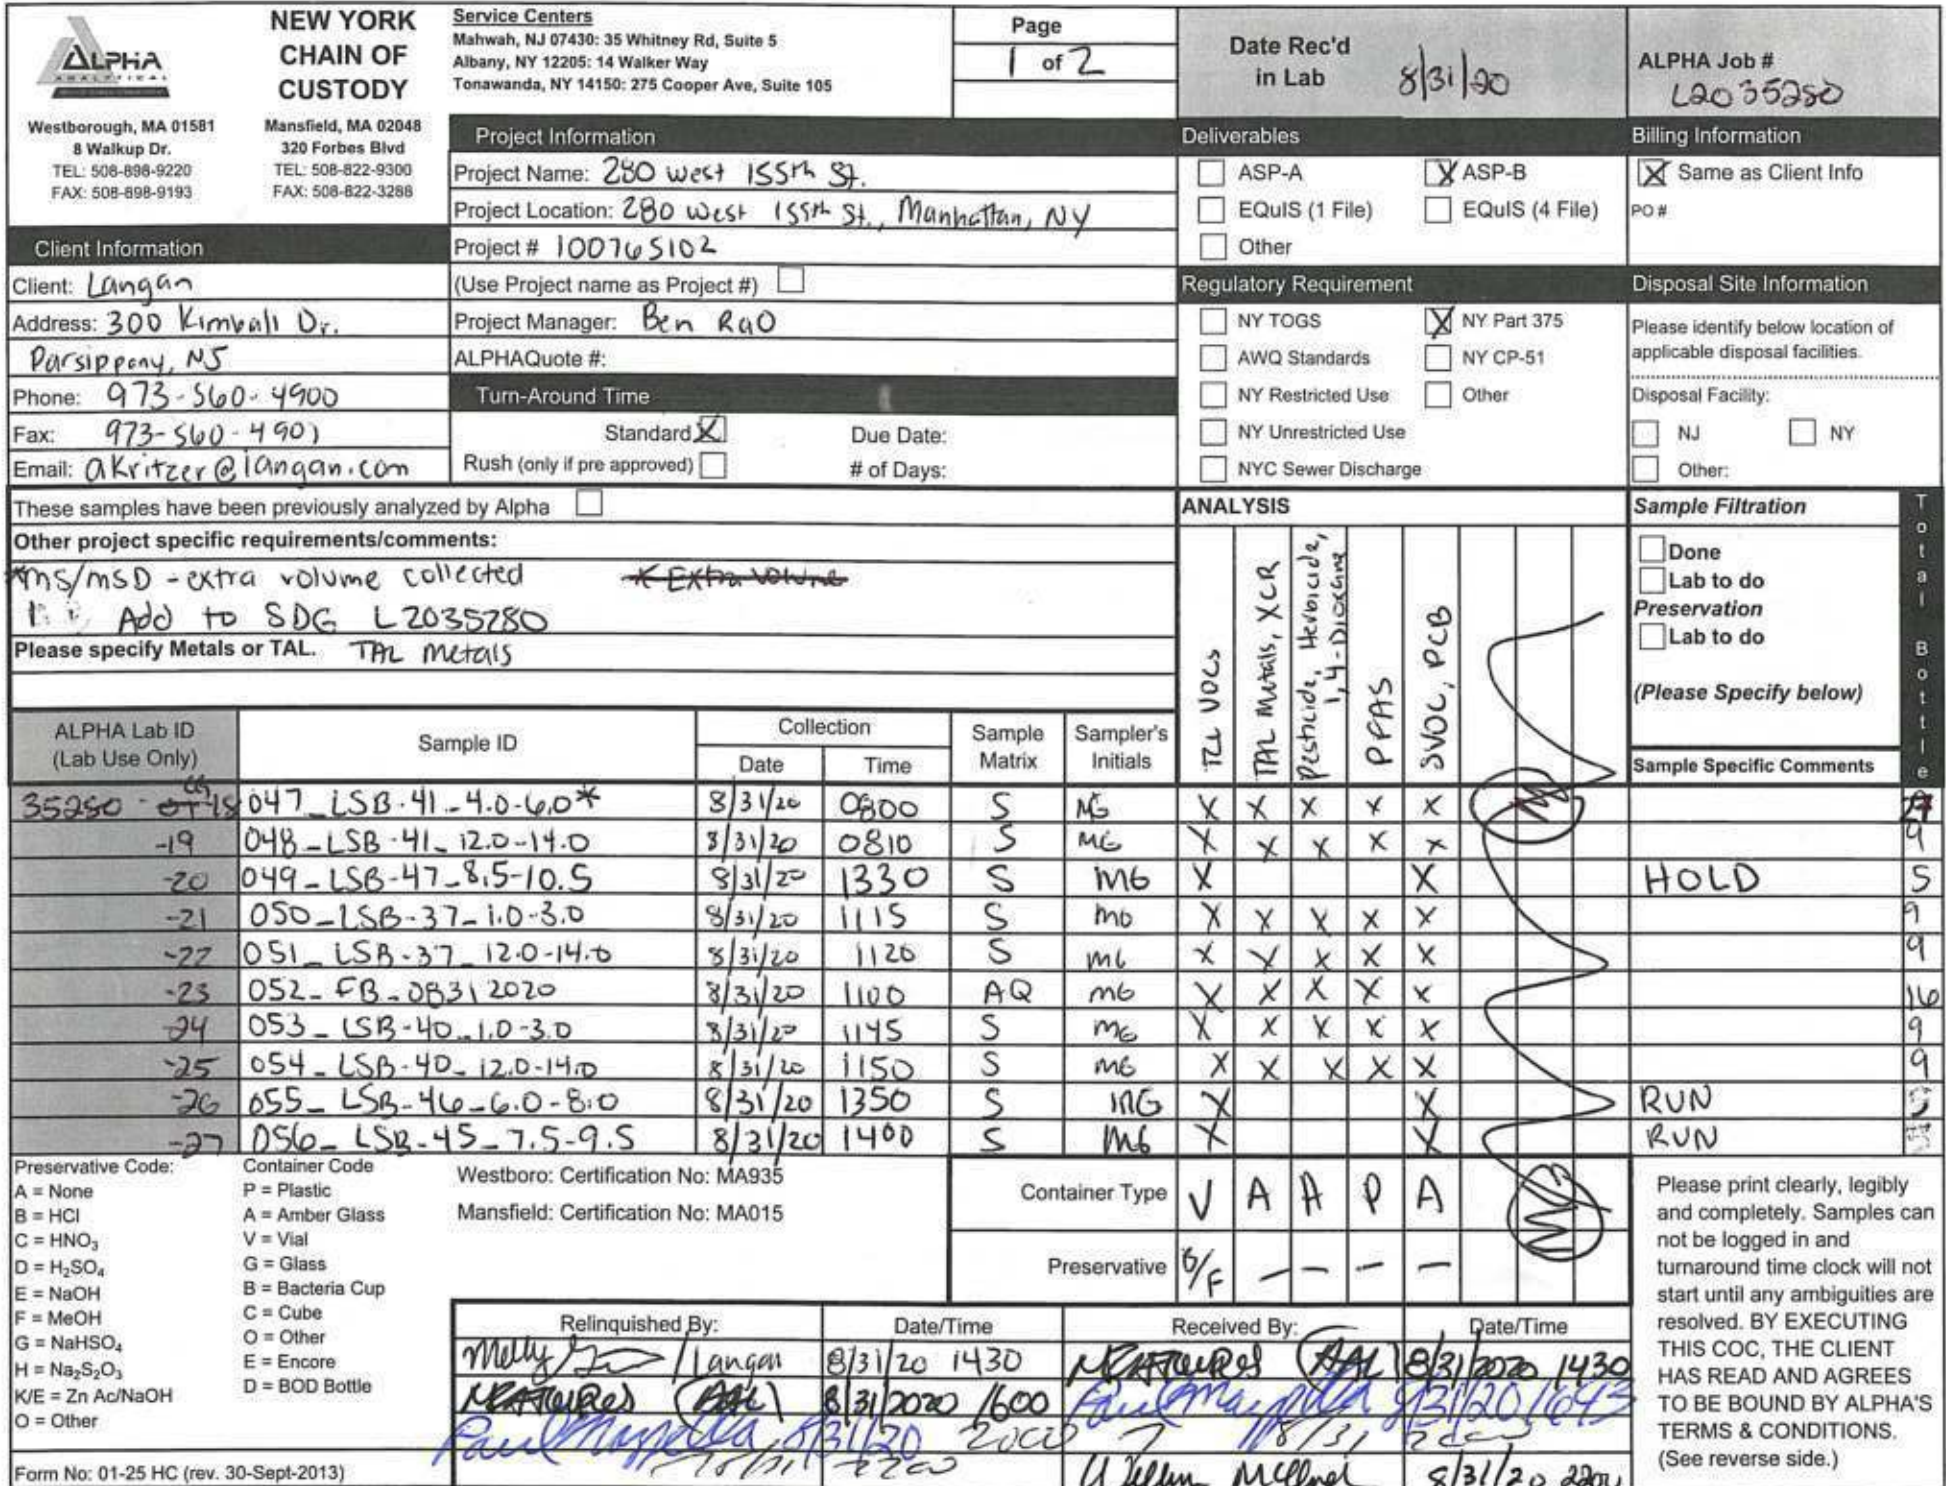 ALPHA
ANALYTICAL
NEW YORK
CHAIN OF
CUSTODY
Westborough, MA 01581
8 Walkup Dr.
TEL: 508-898-9220
FAX: 508-898-9193
Mansfield, MA 02048
320 Forbes Blvd
TEL: 508-822-9300
FAX: 508-822-3288
Service Centers
Mahwah, NJ 07430: 35 Whitney Rd, Suite 5
Albany, NY 12205: 14 Walker Way
Tonawanda, NY 14150: 275 Cooper Ave, Suite 105
Page
1 of 2
Date Rec'd
in Lab 8/31/20
ALPHA Job #
L2035280
Project Information
Project Name: 280 West 155th St.
Project Location: 280 West 155th St., Manhattan, NY
Project # 100765102
(Use Project name as Project #)
Project Manager: Ben Rao
ALPHAQuote #:
Turn-Around Time
Standard X Due Date:
Rush (only if pre approved) # of Days:
Client Information
Client: Langan
Address: 300 Kimball Dr.
Parsippany, NJ
Phone: 973-560-4900
Fax: 973-560-4901
Email: akritzer@langan.com
Deliverables
ASP-A X ASP-B
EQuIS (1 File) EQuIS (4 File)
Other
Regulatory Requirement
NY TOGS X NY Part 375
AWQ Standards NY CP-51
NY Restricted Use Other
NY Unrestricted Use
NYC Sewer Discharge
Billing Information
X Same as Client Info
PO #
Disposal Site Information
Please identify below location of
applicable disposal facilities.
Disposal Facility:
NJ NY
Other:
These samples have been previously analyzed by Alpha
Other project specific requirements/comments:
*MS/MSD - extra volume collected * Extra Volume
Add to SDG L2035280
Please specify Metals or TAL. TAL Metals
ANALYSIS
TCL VOCs
TAL Metals, XCR
Pesticide, Herbicide,
1,4-Dioxane
PFAS
SVOC, PCB
Sample Filtration
Done
Lab to do
Preservation
Lab to do
(Please Specify below)
Sample Specific Comments
Total Bottle
ALPHA Lab ID
(Lab Use Only)
Sample ID
Collection
Date Time
Sample
Matrix
Sampler's
Initials
35280 -18 047_LSB-41_4.0-6.0* 8/31/20 0800 S MG X X X X X 27
-19 048_LSB-41_12.0-14.0 8/31/20 0810 S MG X X X X X 9
-20 049_LSB-47_8.5-10.5 8/31/20 1330 S MG X X HOLD 5
-21 050_LSB-37_1.0-3.0 8/31/20 1115 S MG X X X X X 9
-22 051_LSB-37_12.0-14.0 8/31/20 1120 S MG X X X X X 9
-23 052_FB_08312020 8/31/20 1100 AQ MG X X X X X 16
-24 053_LSB-40_1.0-3.0 8/31/20 1145 S MG X X X X X 9
-25 054_LSB-40_12.0-14.0 8/31/20 1150 S MG X X X X X 9
-26 055_LSB-46_6.0-8.0 8/31/20 1350 S MG X X RUN
-27 056_LSB-45_7.5-9.5 8/31/20 1400 S MG X X RUN
Preservative Code:
A = None
B = HCl
C = HNO3
D = H2SO4
E = NaOH
F = MeOH
G = NaHSO4
H = Na2S2O3
K/E = Zn Ac/NaOH
O = Other
Container Code
P = Plastic
A = Amber Glass
V = Vial
G = Glass
B = Bacteria Cup
C = Cube
O = Other
E = Encore
D = BOD Bottle
Westboro: Certification No: MA935
Mansfield: Certification No: MA015
Container Type V A A P A
Preservative B/F - - - -
Relinquished By: Date/Time Received By: Date/Time
Molly / Langan 8/31/20 1430 (AAL) 8/31/2020 1430
(AAL) 8/31/2020 1600 Paul Mazzella 8/31/20 1645
Paul Mazzella 8/31/20 2000 8/31
8/31/20 2200
Please print clearly, legibly
and completely. Samples can
not be logged in and
turnaround time clock will not
start until any ambiguities are
resolved. BY EXECUTING
THIS COC, THE CLIENT
HAS READ AND AGREES
TO BE BOUND BY ALPHA'S
TERMS & CONDITIONS.
(See reverse side.)
Form No: 01-25 HC (rev. 30-Sept-2013)